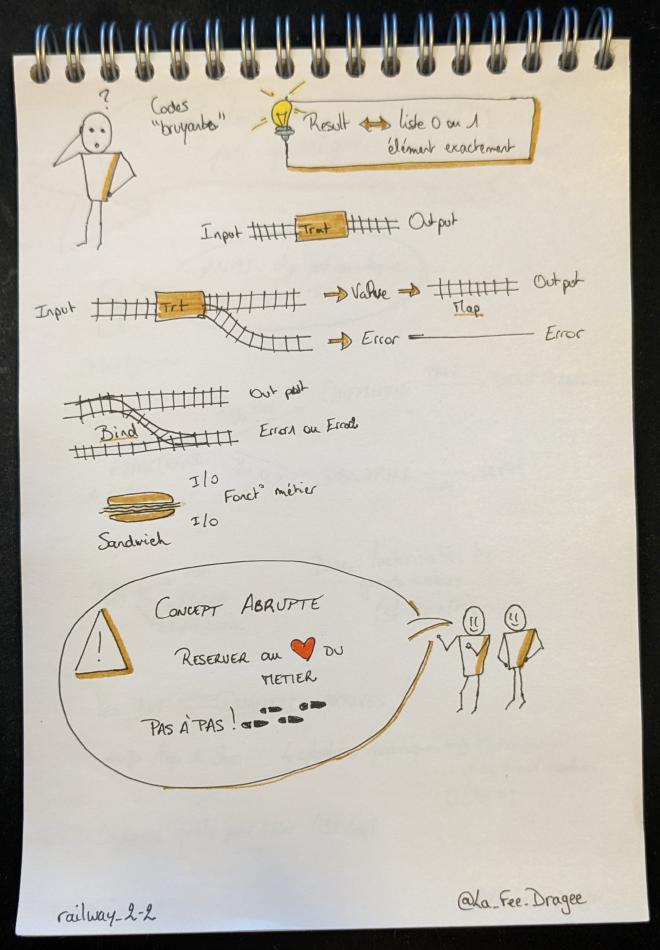 ?
Codes
"bruyants"
Result ⇔ liste 0 ou 1
élément exactement
Input Trat Output
Input Trt → Value → Map Output
→ Error Error
Out put
Bind Error1 ou Error2
I/O
Fonct° métier
I/O
Sandwich
!
CONCEPT ABRUPTE
RESERVER au ❤ DU
METIER
PAS À PAS !
railway_2-2
@La_Fee_Dragee